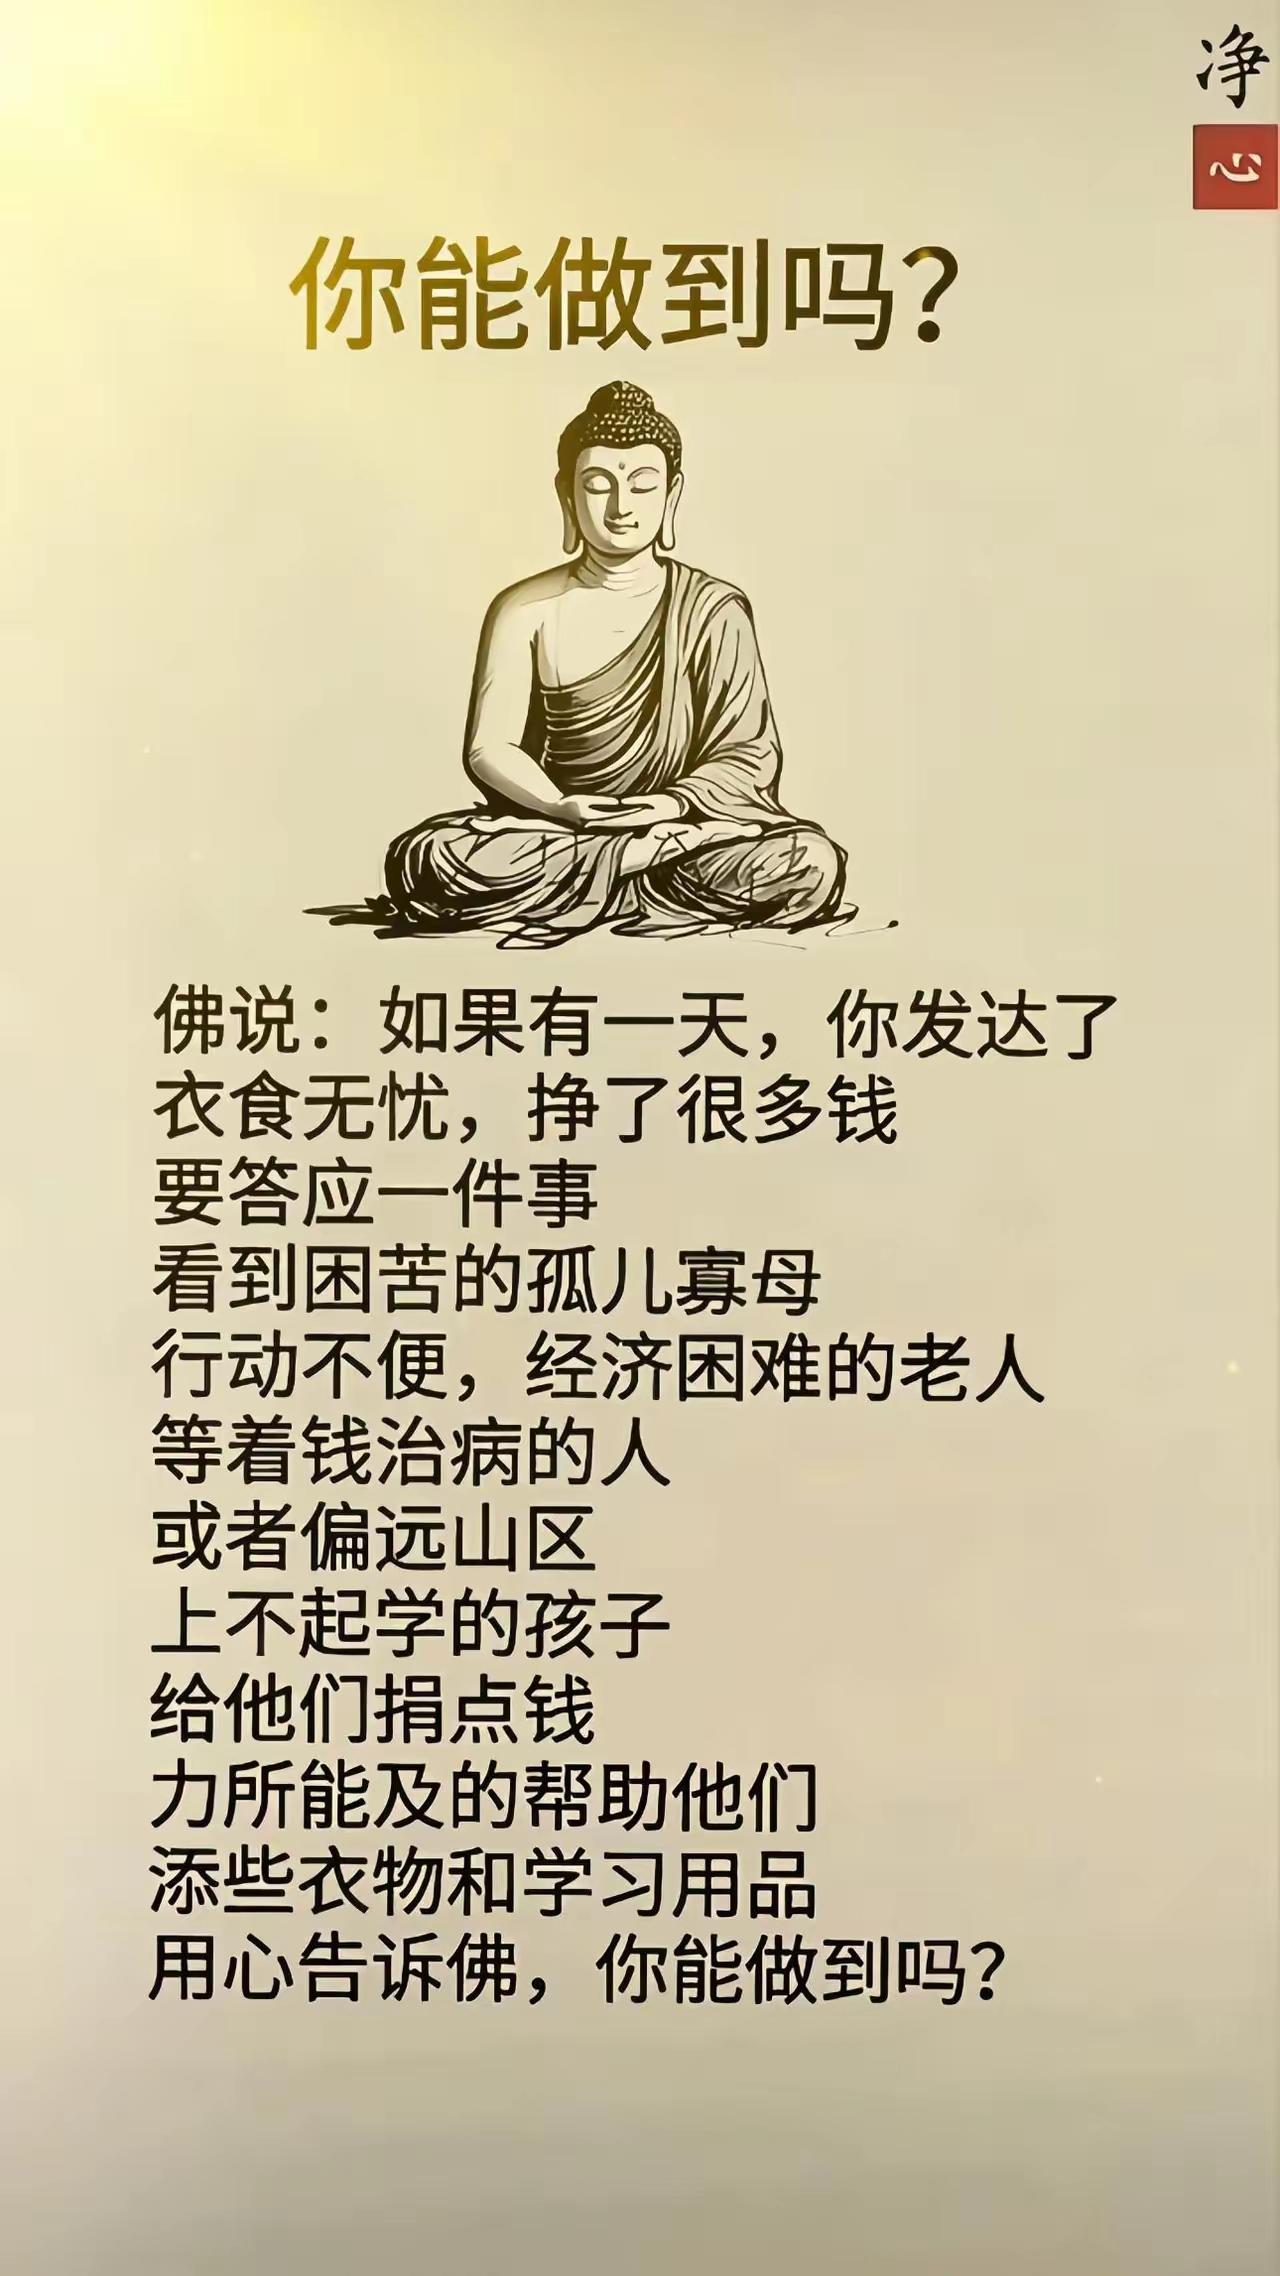 净
心
你能做到吗？
佛说：如果有一天，你发达了
衣食无忧，挣了很多钱
要答应一件事
看到困苦的孤儿寡母
行动不便，经济困难的老人
等着钱治病的人
或者偏远山区
上不起学的孩子
给他们捐点钱
力所能及的帮助他们
添些衣物和学习用品
用心告诉佛，你能做到吗？